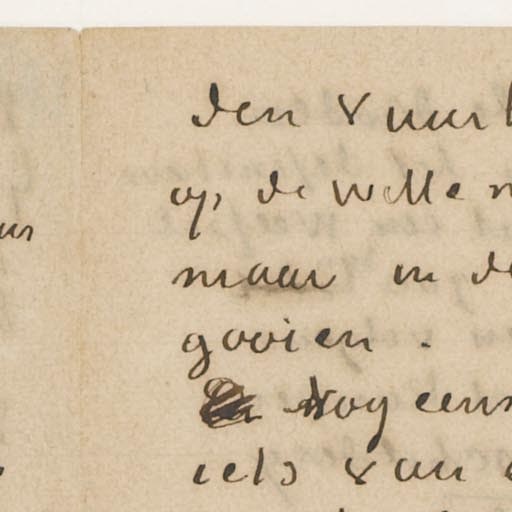 den vuur
op de wille
maar in de
gooien.
Nog eens
iets van